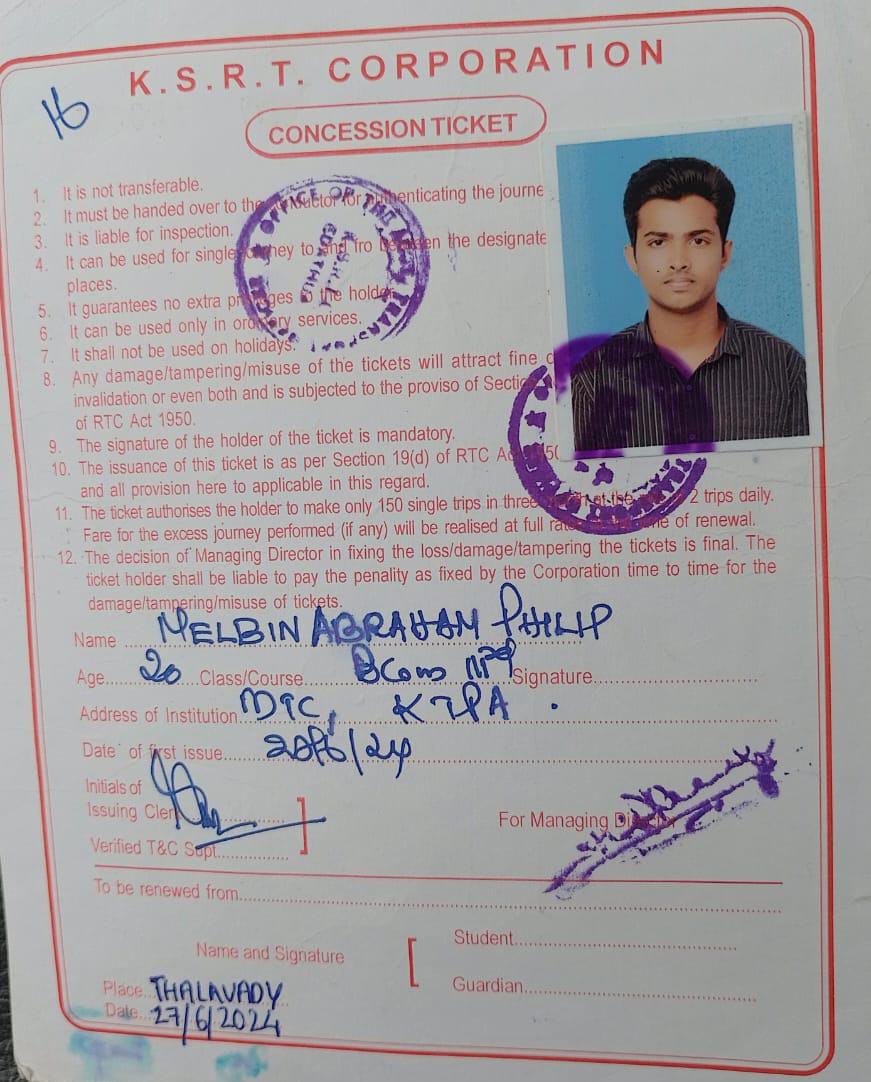 K.S.R.T. CORPORATION
16
CONCESSION TICKET
1. It is not transferable.
2. It must be handed over to the conductor for authenticating the journe
3. It is liable for inspection.
4. It can be used for single journey to and fro between the designate
places.
5. It guarantees no extra privileges to the holder.
6. It can be used only in ordinary services.
7. It shall not be used on holidays.
8. Any damage/tampering/misuse of the tickets will attract fine o
invalidation or even both and is subjected to the proviso of Sectio
of RTC Act 1950.
9. The signature of the holder of the ticket is mandatory.
10. The issuance of this ticket is as per Section 19(d) of RTC Act 1950
and all provision here to applicable in this regard.
11. The ticket authorises the holder to make only 150 single trips in three 2 trips daily.
Fare for the excess journey performed (if any) will be realised at full rate time of renewal.
12. The decision of Managing Director in fixing the loss/damage/tampering the tickets is final. The
ticket holder shall be liable to pay the penality as fixed by the Corporation time to time for the
damage/tampering/misuse of tickets.
Name MELBIN ABRAHAM PHILIP
Age 20 Class/Course BCom Signature
Address of Institution KZPA.
Date of first issue
Initials of
Issuing Clerk
For Managing Director
Verified T&C Supt
To be renewed from
Name and Signature
Student
Guardian
Place THALAVADY
Date 27/6/2024
OFFICE OF THE